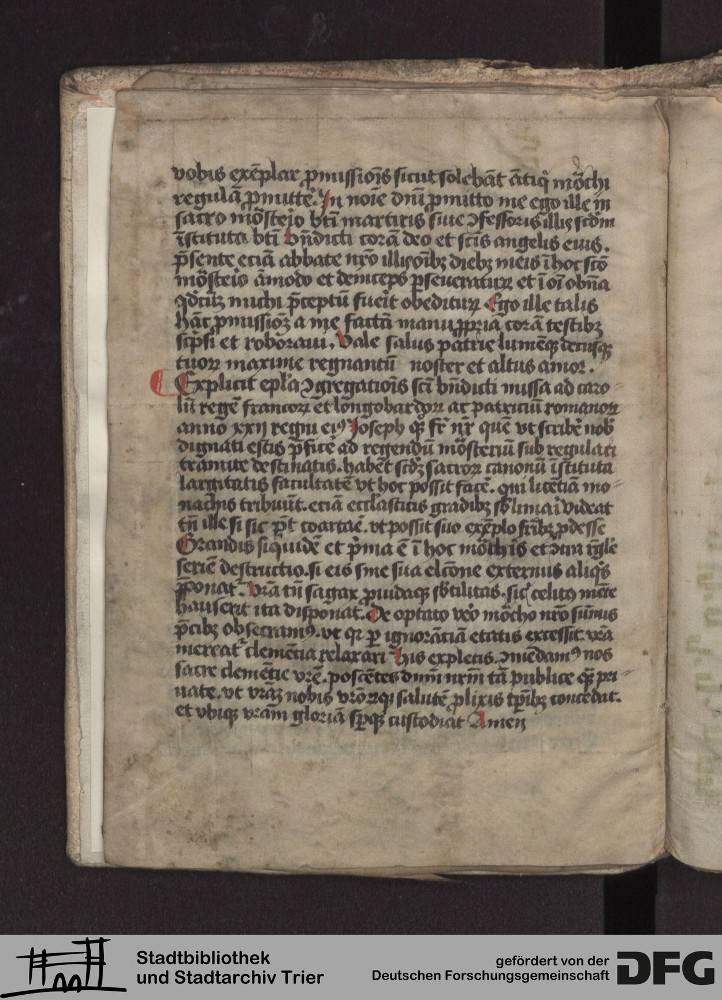 vobis exēplar ꝓmissiōis sicut solebāt ātiqͥ mōchi
regulā ꝓmitte. In noīe dnī ꝓmitto me ego ille in
sacro mōsterio btī martiris siue ↄfessoris illiꝰ scdm
īstituta btī bn̄dicti corā deo et scīs angelis eius.
p̄sente eciā abbate nr̄o illi oīb; dieb; meis ī hoc scō
mōsterio āmodo et deniceps ꝑseueraturꝝ et ī oī obn̄a
q̄dcūq; michi p̄ceptū fuerit obediturꝝ Ego ille talis
hāc ꝓmissiōꝫ a me factā manu ꝓpria corā testibꝫ
scͥpsi et roboraui. Vale salus patrie lumēq; decusq;
tuorꝝ maxime regnantū noster et altus amor.
Explicit epl̄a ↄgregatiois scī bn̄dicti missa ad caro
lū regē francorꝝ et lōngobardorꝝ ac patriciū romanorꝝ
anno xxii regni eiꝰ Joseph qꝫ fr̄ nr̄ quē vt scribē nob̄
dignati estis p̄ficē ad regendū mōsteriū sub regulari
tramite destinatis. habēt scdꝫ sacrorꝝ canonū īstituta
largitatis facultatē vt hoc possit facē. qui licētiā mo
nachis tribuūt. eciā ecclāsticis gradibꝫ sb̄limari videat
tn̄ ille si sic pt̄ coartare. vt possit suo exēplo fr̄ibꝫ ꝓdesse
Grandis siquidē et pͥma ē ī hoc mōchis et
seriē destructio. si eis sine sua elcōne externus aliqͥs
p̄ponat. Vr̄a tn̄ sagax ꝓuidaq; sb̄tilitas. sic celitꝰ
hauserit ita disponat. De optato vero mōcho nr̄o sūmis
p̄cibꝫ obsecramꝰ. vt qr ꝑ ignorātiā etatis excessit. vr̄a
mereat clemētia relaxari His expletis. ↄmēdamꝰ nos
sacre clemētie vr̄e. poscētes dnm nr̄m tā publice qꝫ pri
uate. vt vrāꝫ nobis vr̄orūq; salutē ꝓlixis tp̄ibꝫ concedat.
et vbiq; vr̄am gloriā sꝑq; custodiat Amen
Stadtbibliothek
und Stadtarchiv Trier
gefördert von der
Deutschen Forschungsgemeinschaft
DFG